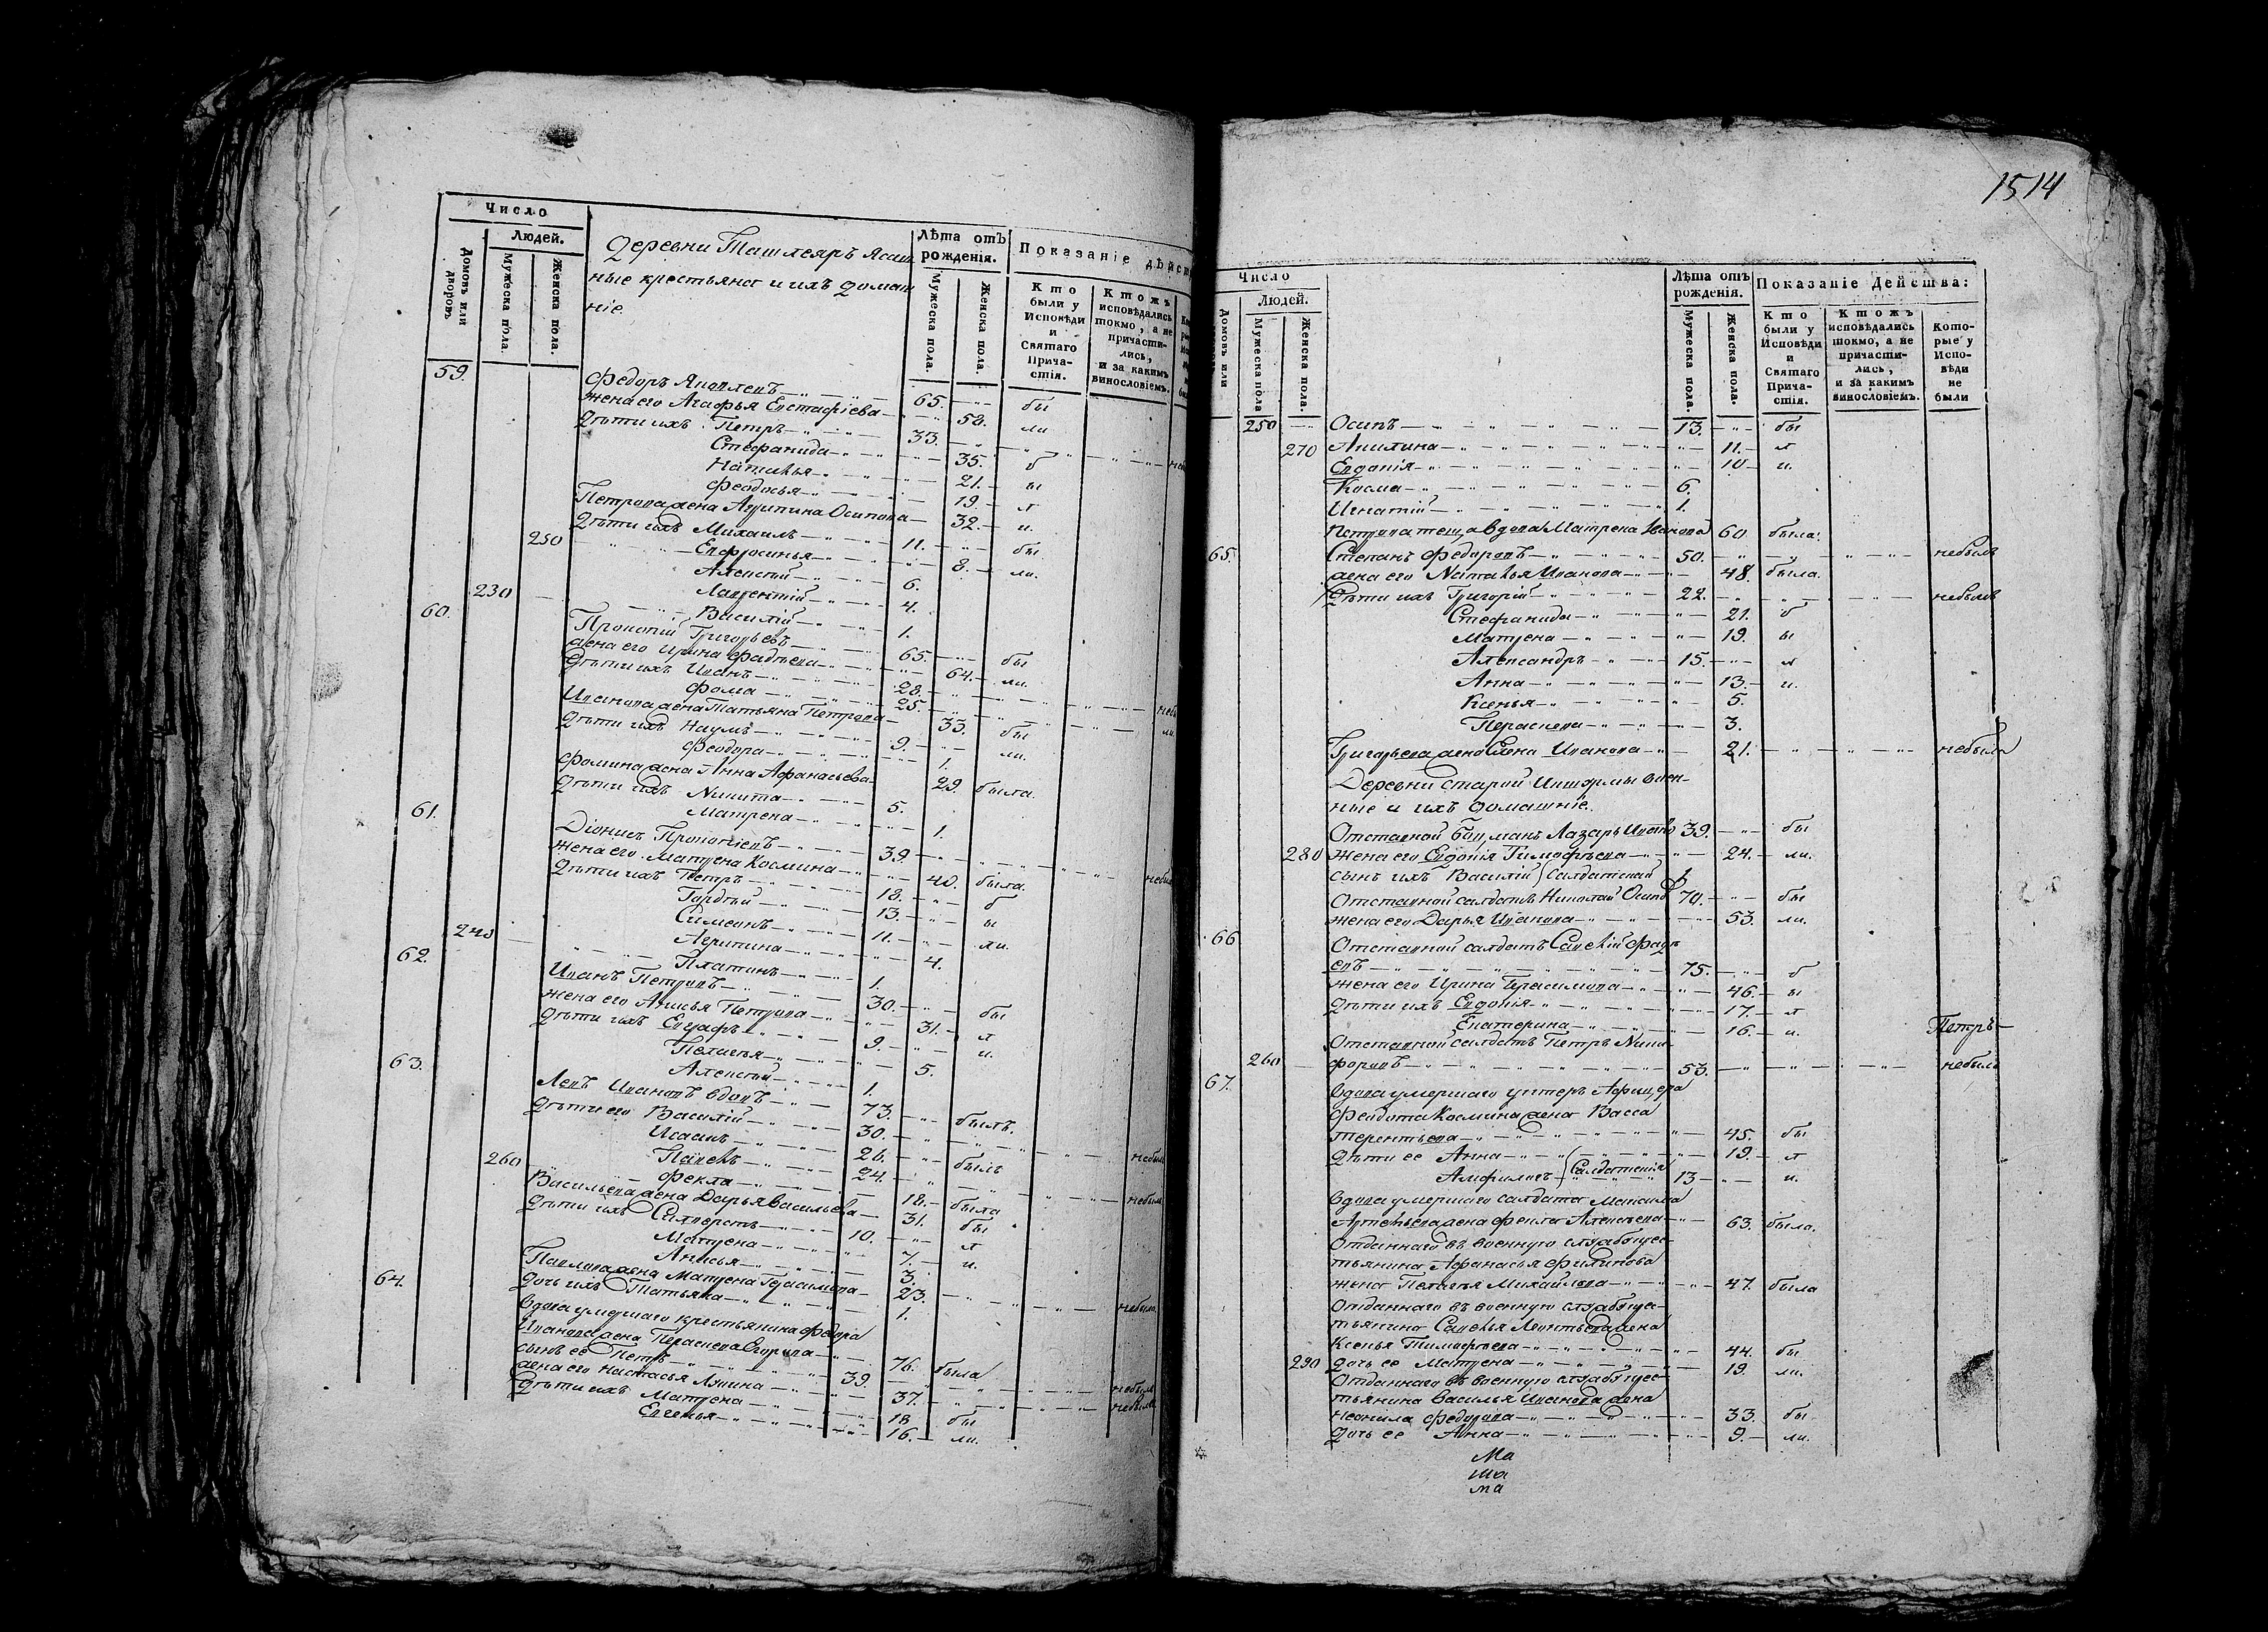 Число
Людей.
Домовъ или дворовъ.
Мужеска пола.
Женска пола.
Деревни Ташлеяръ Ясаш
ные крестьяне и ихъ домаш
ніе.
Лѣта отъ рожденія.
Мужеска пола.
Женска пола.
Показаніе дѣйст
Кто были у Исповѣди и Святаго Причастія.
Ктожъ исповѣдались токмо, а не причастились, и за какимъ винословіемъ.
59. Федоръ Яковлевъ 65. бы
жена его Агафья Евстафіева 58. ли
дѣти ихъ Петръ 33.
Стефанида 35. б
Наталья 21. ы
Феодосья 19. л
Петрова жена Агрипина Осипова 32. и.
дѣти ихъ Михаилъ 11. бы
250 Ефросинья 8. ли.
Алексѣй 6.
Лаврентій 4.
230 Василій 1.
60. Прокопій Григорьевъ 65. бы
жена его Ирина Фадѣева 64. ли.
дѣти ихъ Иванъ 28.
Фома 25.
Иванова жена Татьяна Петрова 33. бы
дѣти ихъ Наумъ 9. ли.
Феодора 1.
Фомина жена Анна Афанасьева 29. была.
дѣти ихъ Никита 5.
Матрена 1.
61. Діонисъ Прокопіевъ 39.
жена его Матрена Космина 40. была.
дѣти ихъ Петръ 18. б
Гордѣй 13. ы
Симеонъ 11. ли.
Агрипина 4.
240 Платонъ 1.
62. Иванъ Петровъ 30. бы
жена его Анисья Петрова 31. л
дѣти ихъ Евграфъ 9. и.
Пелагея 5.
Алексѣй 1.
63. Левъ Ивановъ вдовъ 73. былъ.
дѣти его Василій 30.
Исаакъ 26. былъ
Павелъ 24.
260 Фекла 18. была
Васильева жена Дарья Васильева 31. бы
дѣти ихъ Силверстъ 10. л
Матрена 7. и.
Анисья 3.
Павлова жена Матрена Герасимова 23. небыла
дочь ихъ Татьяна 1.
64. вдова умершаго крестьянина Федора
Иванова жена Параскева Егорова 76. была
сынъ ее Петръ 39.
жена его Настасья 37.
дѣти ихъ Матрена 18 бы
Евгенья 16. ли.
1514
Число
Людей.
Домовъ или
Мужеска пола
Женска пола.
Лѣта отъ рожденія.
Мужеска пола.
Женска пола.
Показаніе Действа:
Кто были у Исповѣди и Святаго Причастія.
Ктожъ исповѣдались токмо, а не причастились, и за какимъ винословіемъ.
Которые у Исповѣди не были
250 Осипъ 13. бы
270 Акилина 11. л
Евдокія 10 и.
Косма 6.
Игнатій 1.
Петрова теща вдова Матрена Иванова 60 была.
65. Степанъ Федоровъ 50. небылъ
жена его Наталья Иванова 48. была.
дѣти ихъ Григорій 22. небылъ
Стефанида 21. б
Матрена 19. ы
Александръ 15. л
Анна 13. и.
Ксенья 5.
Параскева 3.
Григорьева жена Елена Иванова 21. небыла
Деревни Старой воен-
ные и ихъ домашніе.
Отставной Лазарь 39. бы
280 жена его Евдокія Тимофѣева 24. ли.
сынъ ихъ Василій Салдатской
Отставной салдатъ Николай Осиповъ 70. бы
жена его Дарья Иванова 53. ли.
66 Отставной салдатъ Савелій Фадѣ
евъ 75. б
жена его Ирина Герасимова 46. ы
дѣти ихъ Евдокія 17. л
Екатерина 16. и. Петръ
Отставной салдатъ Петръ Ники-
260 форовъ 53. небылъ
67. вдова умершаго унтеръ Афицера
Федота Космина жена Васса
Терентьева 45. бы
дѣти ее Анна 19. л
Амфилогъ Салдатскія 13 и.
вдова умершаго салдата Максима
Артемьева жена Фекла Алексѣева 63. была.
Отданнаго въ военную службу крес-
тьянина Афанасья Филипова
жена Пелагея Михайлова 47. была
Отданнаго въ военную службу крес-
тьянина Савелья Леонтьева жена
Ксенья Тимофѣева 44. бы
290 дочь ее Матрена 19. ли.
Отданнаго въ военную службу крес-
тьянина Василья Иванова жена
Неонила Федорова 33. бы
дочь ее Анна 9. ли.
Ма